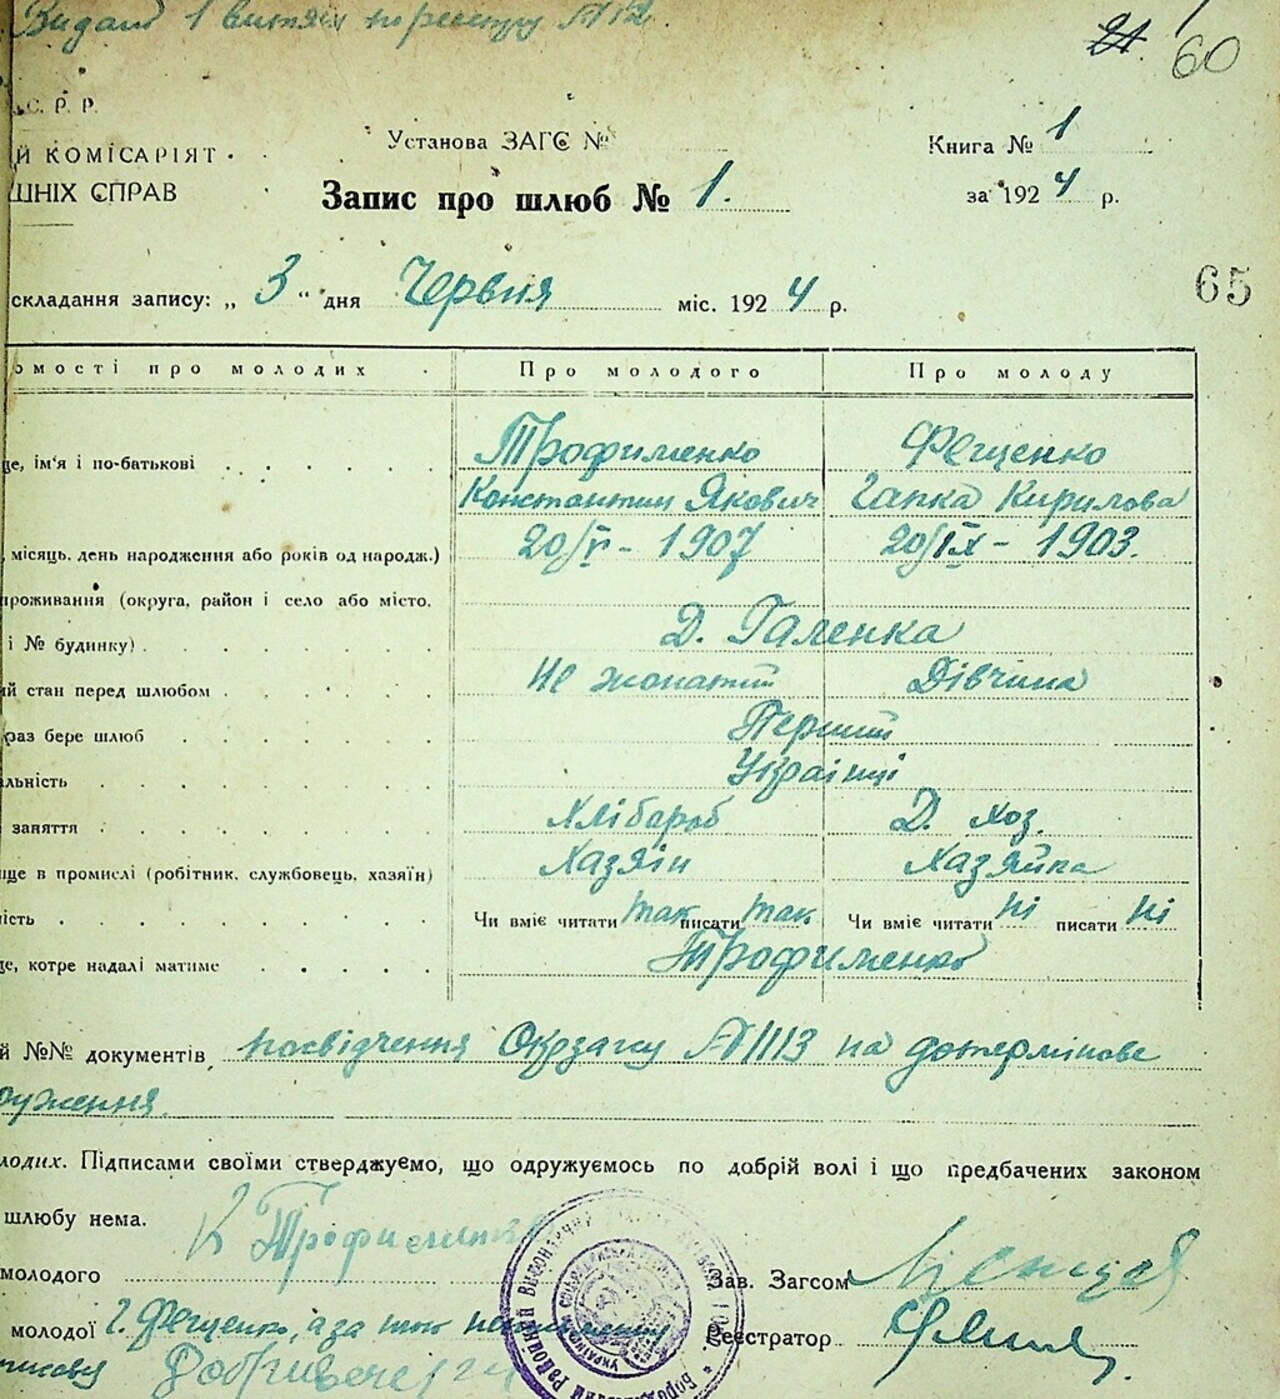 Видано 1 витяг по реєстру №12.
21. 60
С. Р. Р.
Й КОМІСАРІЯТ
ШНІХ СПРАВ
Установа ЗАГС №
Книга № 1
Запис про шлюб № 1.
за 1924 р.
складання запису: „ 3 “ дня Червня міс. 1924 р.
65
омості про молодих Про молодого Про молоду
ще, ім'я і по-батькові Трофименко Фещенко
Константин Якович Гапка Кирилова
, місяць, день народження або років од народж.) 20/V - 1907 20/IX - 1903.
проживання (округа, район і село або місто,
і № будинку) Д. Галенка
ий стан перед шлюбом Не жонатий Дівчина
раз бере шлюб Перший
льність Українці
заняття Хлібароб Д. хоз.
ще в промислі (робітник, службовець, хазяїн) Хазяїн Хазяйка
ність Чи вміє читати так писати так. Чи вміє читати ні писати ні
ще, котре надалі матиме Трофименко
й №№ документів посвідчення Окрзагсу №1113 на дотермінове
руження.
лодих. Підписами своїми стверджуємо, що одружуємось по добрій волі і що предбачених законом
шлюбу нема.
молодого К Трофименко
Зав. Загсом
молодої Г. Фещенко, а за нею
Реєстратор